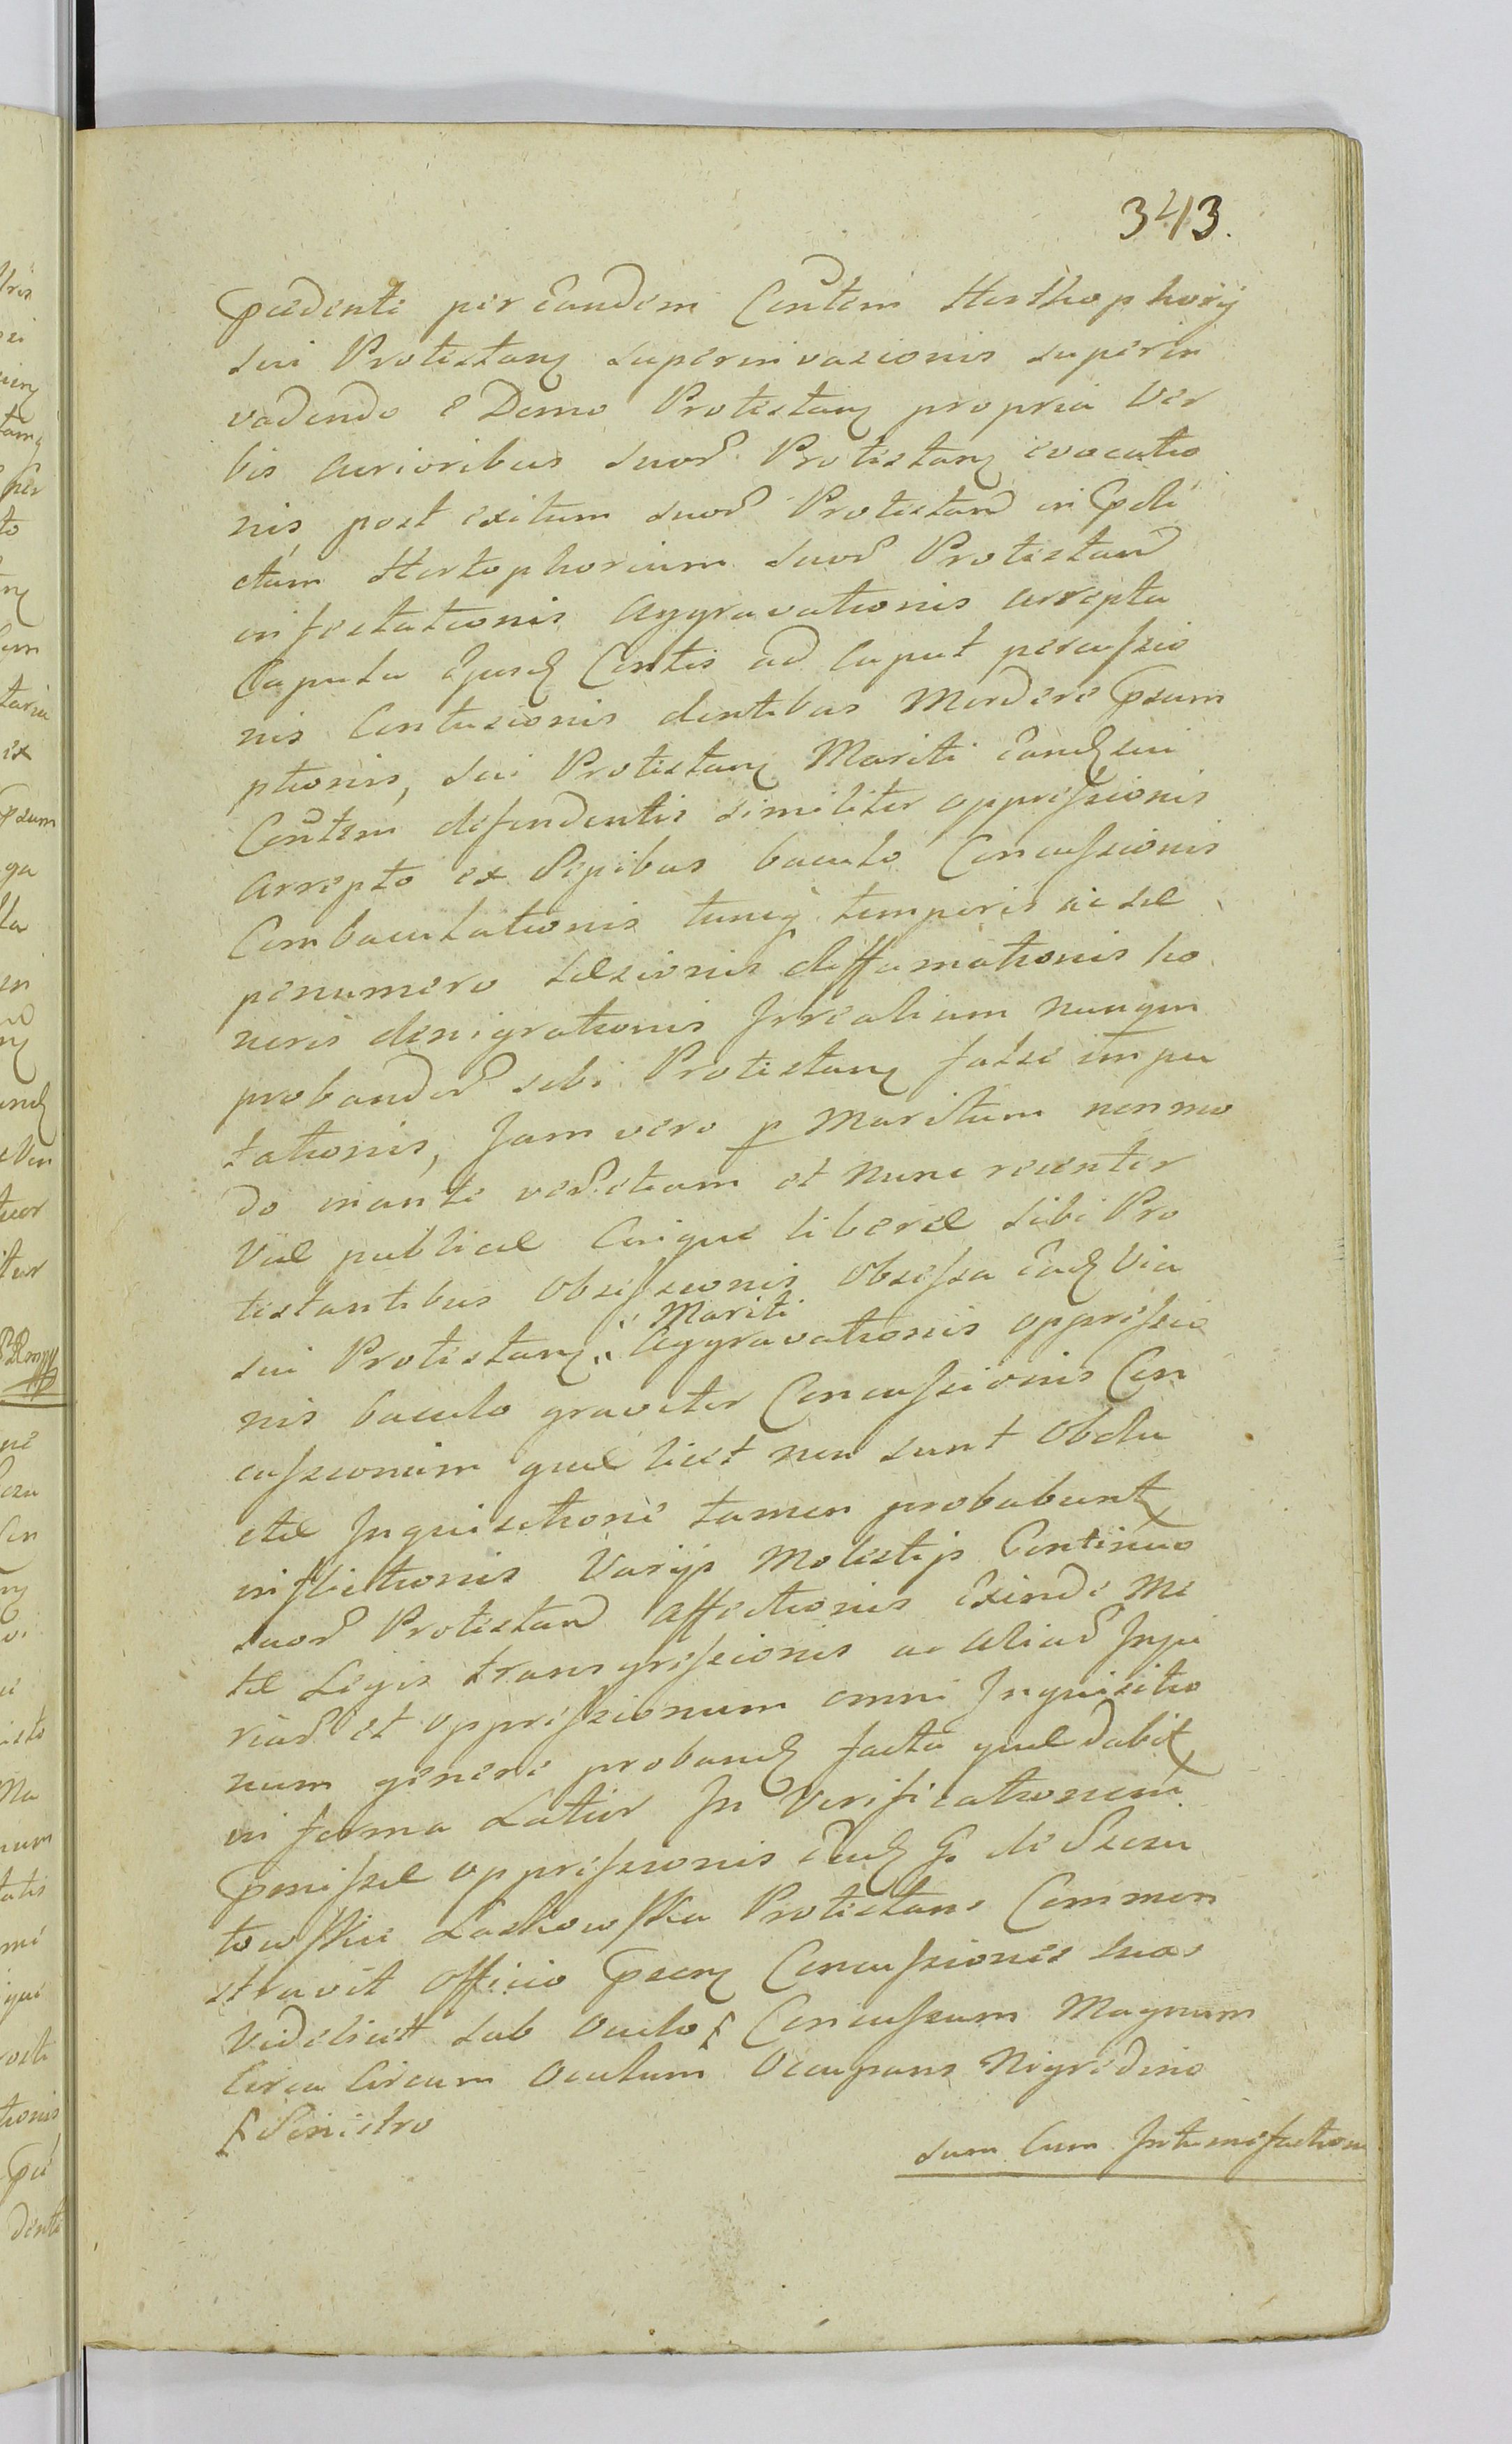 343.
Pcedenti per Eundem Conutem Herthophorij
sui Protestang superinvasionis superin
vadendo e Domo Protestang propria Ver
bis acrioribus suor Protestang evocatio
nis, post exitum suor Protestand in Pdi
ctum Hertophorium suor Protestand
insectationis aggravationis arrepta
Caputu Ejusd Contis ad Caput percussio
nis Contusionis dentibus Mordere Psum
ptionis, sui Protestang Mariti Eand sui
Contem defendentis similiter oppressionis
Arrepto ex Sepibus baculo Concussionis
Combaculationis tuncq temporis ac sæ
penumero Læsionis diffamationis ho
noris denigrationis Irrealium nunqm
probandor sibi Protestang false impu
tationis, Jam vero p Maritum nonmo
do in ante verò etiam et nunc recenter
Viæ publicæ Cuique liberæ sibi Pro
testantibus Obsessionis Obsessa Ead Via
Mariti
sui Protestang aggravationis oppressio
nis baculo graviter Concussionis Con
cussionum quæ licet non sunt Obdu
ctæ Inquisitione tamen probabunt
inflictionis Varijs Molestijs Continuo
suor Protestand Affectionis Exinde Me
tæ Legis transgressionis ac aliar Inju
riar et oppressionum omni Inquisitio
num genere proband facta quæ dabit
in forma Latior In Verificationem
Pmissæ oppressionis Ead G. de Szczu
towskie Laskowska Protestans Common
stravit Officio Psens Concussiones suas
Videlicet sub Oculo Concussum Magnum
Circa Circum Oculum Occupans Nigredino
Sinistro
sum Cum Intumefactione